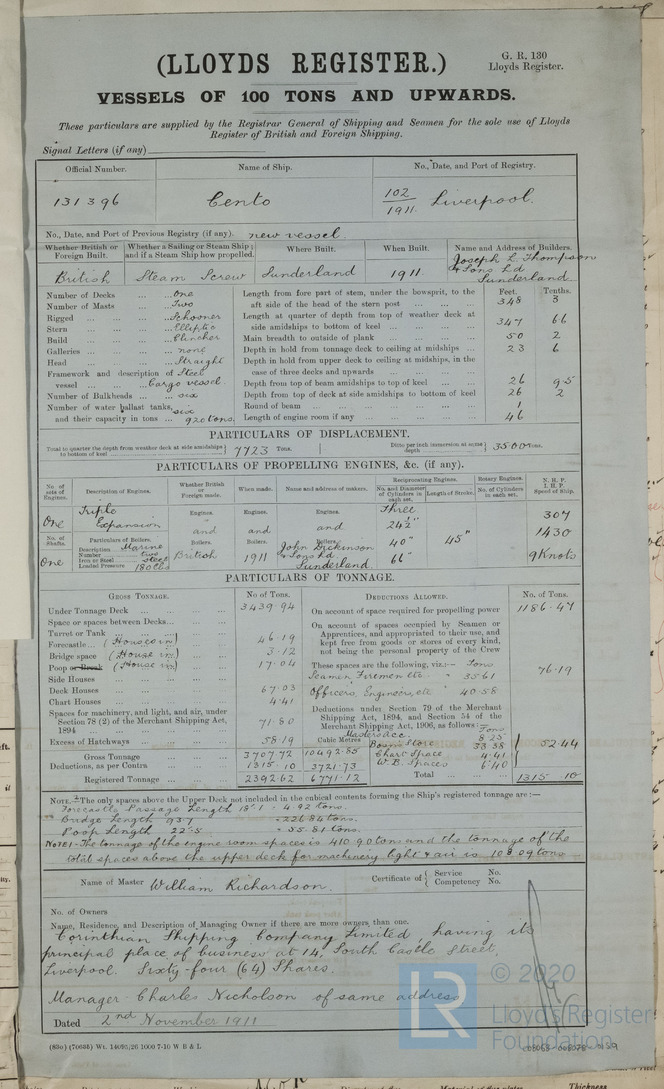 (LLOYDS REGISTER.)
G. R. 130
Lloyds Register.
VESSELS OF 100 TONS AND UPWARDS.
These particulars are supplied by the Registrar General of Shipping and Seamen for the sole use of Lloyds
Register of British and Foreign Shipping.
Signal Letters (if any)
Official Number. Name of Ship. No., Date, and Port of Registry.
131396 Cento 102/1911 Liverpool.
No., Date, and Port of Previous Registry (if any). new vessel.
Whether British or Foreign Built. Whether a Sailing or Steam Ship; and if a Steam Ship how propelled. Where Built. When Built. Name and Address of Builders.
British Steam Screw Sunderland 1911. Joseph L Thompson & Sons Ld Sunderland
Feet. Tenths.
Number of Decks ... ... One
Number of Masts ... ... Two
Rigged ... ... ... Schooner
Stern ... ... ... Elliptic
Build ... ... ... Clincher
Galleries ... ... ... none
Head ... ... ... Straight
Framework and description of Steel
vessel ... ... Cargo vessel.
Number of Bulkheads ... ... six
Number of water ballast tanks, six
and their capacity in tons ... 920 tons.
Length from fore part of stem, under the bowsprit, to the
aft side of the head of the stern post ... ... 348 3
Length at quarter of depth from top of weather deck at
side amidships to bottom of keel ... ... 347 66
Main breadth to outside of plank ... ... 50 2
Depth in hold from tonnage deck to ceiling at midships ... 23 6
Depth in hold from upper deck to ceiling at midships, in the
case of three decks and upwards ... ...
Depth from top of beam amidships to top of keel ... ... 26 95
Depth from top of deck at side amidships to bottom of keel 26 2
Round of beam ... ... 1
Length of engine room if any ... ... 46
PARTICULARS OF DISPLACEMENT.
Total to quarter the depth from weather deck at side amidships to bottom of keel 7723 Tons. Ditto per inch immersion at same depth 35.00 Tons.
PARTICULARS OF PROPELLING ENGINES, &c. (if any).
No. of sets of Engines. Description of Engines. Whether British or Foreign made. When made. Name and address of makers. Reciprocating Engines. Rotary Engines. N. H. P.
No. and Diameter of Cylinders in each set. Length of Stroke. No. of Cylinders in each set. I. H. P.
Speed of Ship.
One Triple Expansion Engines. Engines. Engines. Three 24½" 307
No. of Shafts. Particulars of Boilers. and and and 40" 45" 1430
One Description Marine Boilers. Boilers. Boilers. 66" 9 Knots
Number two
Iron or Steel Steel British 1911 John Dickinson & Sons Ld Sunderland
Loaded Pressure 180 lbs
PARTICULARS OF TONNAGE.
GROSS TONNAGE. No. of Tons. DEDUCTIONS ALLOWED. No. of Tons.
Under Tonnage Deck ... ... 3439.94
Space or spaces between Decks... ...
Turret or Tank ... ...
Forecastle... (House in) 46.19
Bridge space (House in) 3.12
Poop or Break (House in) 17.04
Side Houses ... ...
Deck Houses ... ... 67.03
Chart Houses ... ... 4.41
Spaces for machinery, and light, and air, under
Section 78 (2) of the Merchant Shipping Act,
1894 ... ... 71.80
Excess of Hatchways ... ... 58.19 Cubic Metres
Gross Tonnage ... 3707.72 10492.85
Deductions, as per Contra ... 1315.10 3721.73
Registered Tonnage ... ... 2392.62 6771.12
On account of space required for propelling power 1186.47
On account of spaces occupied by Seamen or
Apprentices, and appropriated to their use, and
kept free from goods or stores of every kind,
not being the personal property of the Crew
These spaces are the following, viz.:— Tons 76.19
Seamen Firemen etc. 35.61
Officers, Engineers, etc 40.58
Deductions under Section 79 of the Merchant
Shipping Act, 1894, and Section 54 of the
Merchant Shipping Act, 1906, as follows:— Tons
Masters acc. 8.25
Boasn's Store 33.38 52.44
Chart Space 4.41
W. B. Spaces 6.40
Total ... ... 1315.10
NOTE.—The only spaces above the Upper Deck not included in the cubical contents forming the Ship's registered tonnage are:—
Forecastle Passage Length 13'.1 = 4.92 tons.
Bridge Length 93.7 = 226.84 tons.
Poop Length 22.5 = 55.81 tons.
NOTE 1—The tonnage of the engine room spaces is 410.90 tons and the tonnage of the
total spaces above the upper deck for machinery light & air is 108.09 tons
Name of Master William Richardson. Certificate of { Service No.
Competency No.
No. of Owners
Name, Residence, and Description of Managing Owner if there are more owners than one.
Corinthian Shipping Company Limited having its
principal place of business at 14, South Castle Street,
Liverpool. Sixty-four (64) Shares.
Manager - Charles Nicholson of same address
Dated 2nd November 1911
(83o) (70635) Wt. 14035/26 1000 7-10 W B & L
LR
© 2020
Lloyd's Register
Foundation